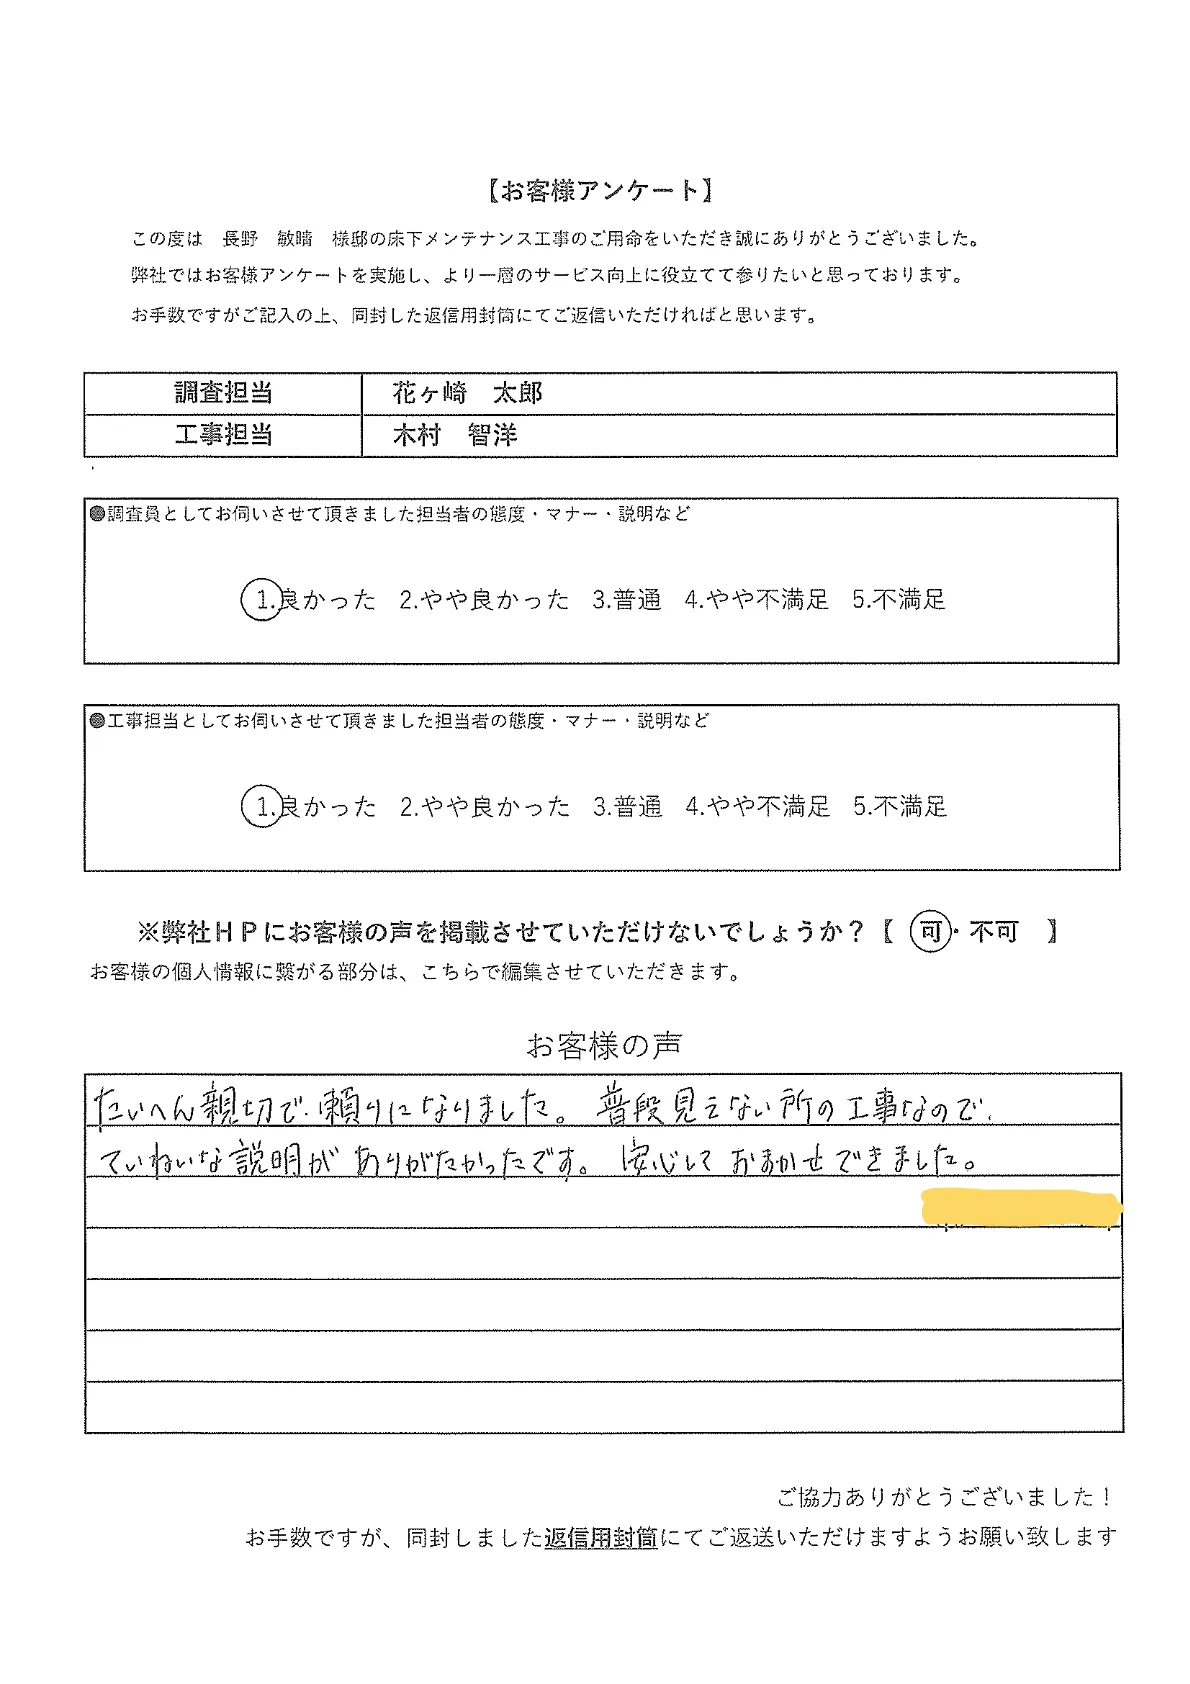 【お客様アンケート】
この度は　長野　敏晴　様邸の床下メンテナンス工事のご用命をいただき誠にありがとうございました。
弊社ではお客様アンケートを実施し、より一層のサービス向上に役立てて参りたいと思っております。
お手数ですがご記入の上、同封した返信用封筒にてご返信いただければと思います。
調査担当　花ヶ崎　太郎
工事担当　木村　智洋
●調査員としてお伺いさせて頂きました担当者の態度・マナー・説明など
1.良かった　2.やや良かった　3.普通　4.やや不満足　5.不満足
●工事担当としてお伺いさせて頂きました担当者の態度・マナー・説明など
1.良かった　2.やや良かった　3.普通　4.やや不満足　5.不満足
※弊社ＨＰにお客様の声を掲載させていただけないでしょうか？【　可・不可　】
お客様の個人情報に繋がる部分は、こちらで編集させていただきます。
お客様の声
たいへん親切で、頼りになりました。普段見えない所の工事なので、
ていねいな説明がありがたかったです。安心しておまかせできました。
ご協力ありがとうございました！
お手数ですが、同封しました返信用封筒にてご返送いただけますようお願い致します